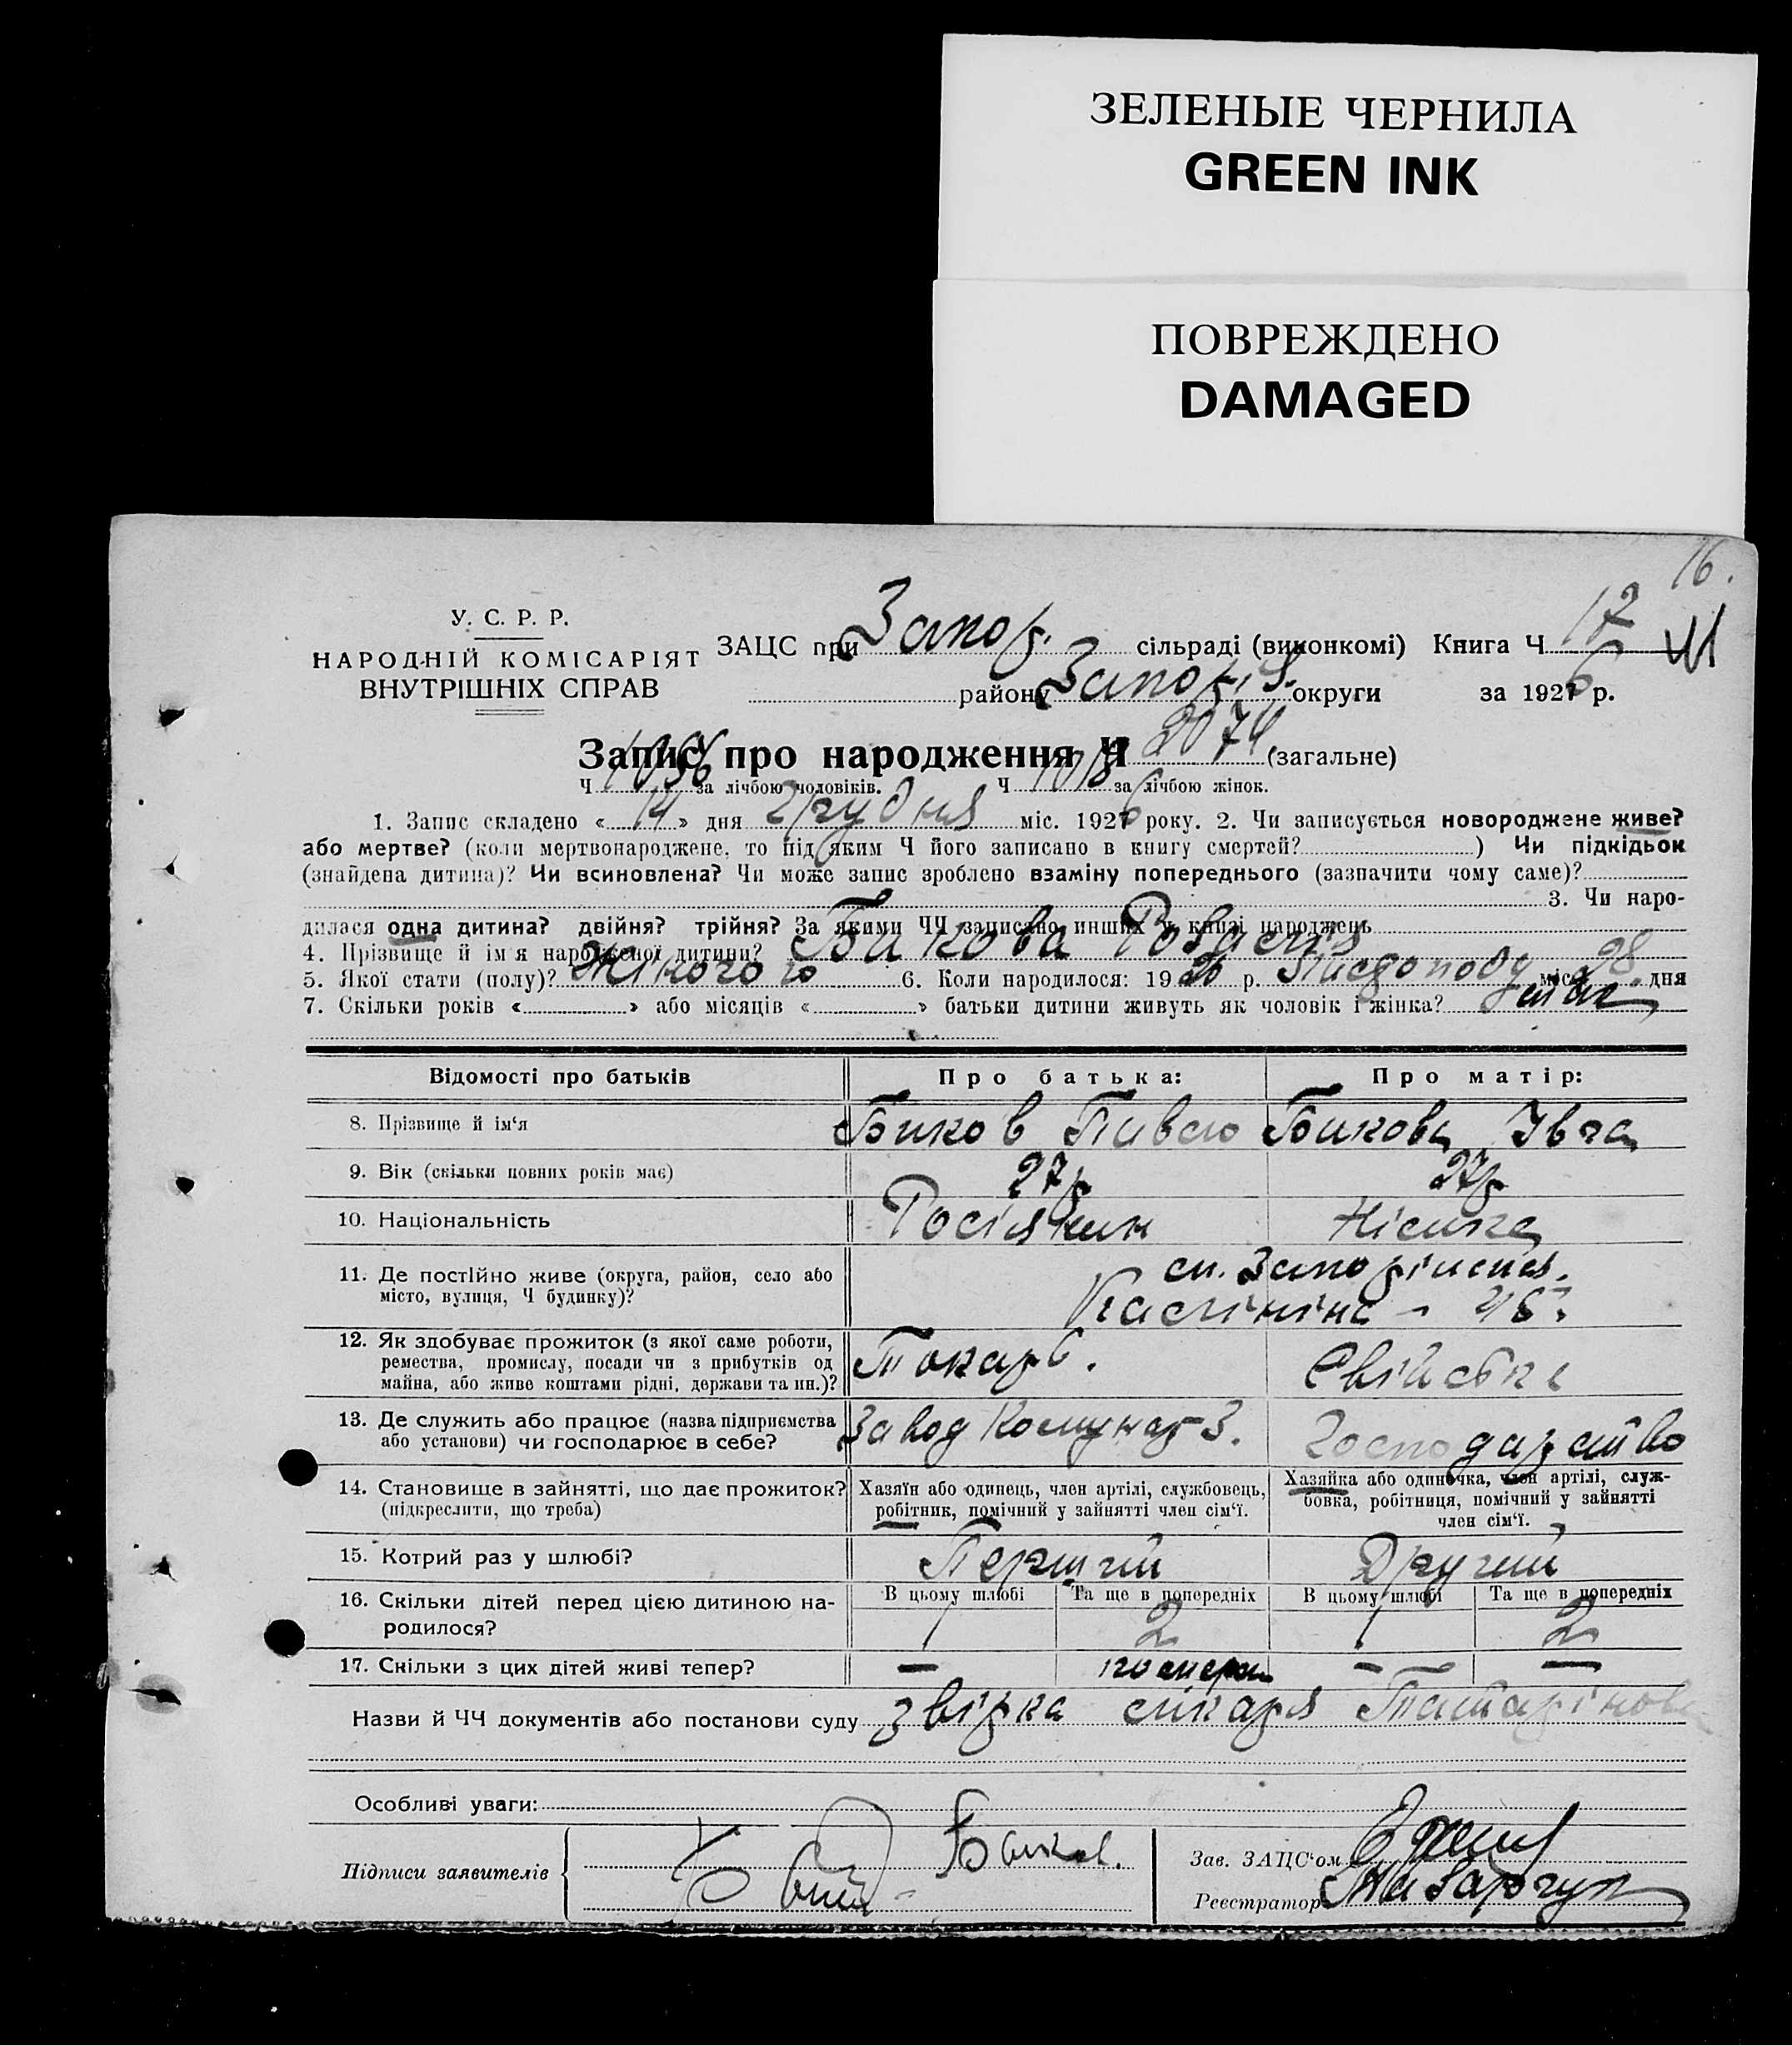 ЗЕЛЕНЫЕ ЧЕРНИЛА
GREEN INK
ПОВРЕЖДЕНО
DAMAGED
16.
У. С. Р. Р.
НАРОДНІЙ КОМІСАРІЯТ
ВНУТРІШНІХ СПРАВ
ЗАЦС при Запор. сільраді (виконкомі) Книга Ч 17
району Запоріз. округи за 1926 р.
Запис про народження Ч 2074 (загальне)
Ч 1056 за лічбою чоловіків. Ч 1018 за лічбою жінок.
1. Запис складено «14» дня Грудня міс. 1926 року. 2. Чи записується новороджене живе?
або мертве? (коли мертвонароджене, то під яким Ч його записано в книгу смертей? ) Чи підкідьок
(знайдена дитина)? Чи всиновлена? Чи може запис зроблено взаміну попереднього (зазначити чому саме)?
3. Чи наро-
дилася одна дитина? двійня? трійня? За якими ЧЧ записано инших у книзі народжень
4. Прізвище й ім'я народженої дитини? Бикова
5. Якої статі (полу)? Жіночого 6. Коли народилося: 1926 р. Листоподу міс. 28 дня
7. Скільки років « » або місяців « » батьки дитини живуть як чоловік і жінка?
Відомості про батьків Про батька: Про матір:
8. Прізвище й ім'я Биков Павло Бикова Івга
9. Вік (скільки повних років має) 27 р 27 р
10. Національність Росіянин Німка
11. Де постійно живе (округа, район, село або
місто, вулиця, Ч будинку)?
12. Як здобуває прожиток (з якої саме роботи,
ремества, промислу, посади чи з прибутків од
майна, або живе коштами рідні, держави та ин.)? Токарь.
13. Де служить або працює (назва підприємства
або установи) чи господарює в себе? Завод Комунар-З. Господарство
14. Становище в зайнятті, що дає прожиток?
(підкреслити, що треба)
Хазяїн або одинець, член артілі, службовець,
робітник, помічний у зайнятті член сім'ї.
Хазяйка або одиначка, член артілі, служ-
бовка, робітниця, помічний у зайнятті
член сім'ї.
15. Котрий раз у шлюбі? Перший Другий
16. Скільки дітей перед цією дитиною на-
родилося?
В цьому шлюбі Та ще в попередніх В цьому шлюбі Та ще в попередніх
1 2 1 2
17. Скільки з цих дітей живі тепер? — — —
Назви й ЧЧ документів або постанови суду
Особливі уваги:
Підписи заявителів Биков.
Зав. ЗАЦС'ом
Реєстратор